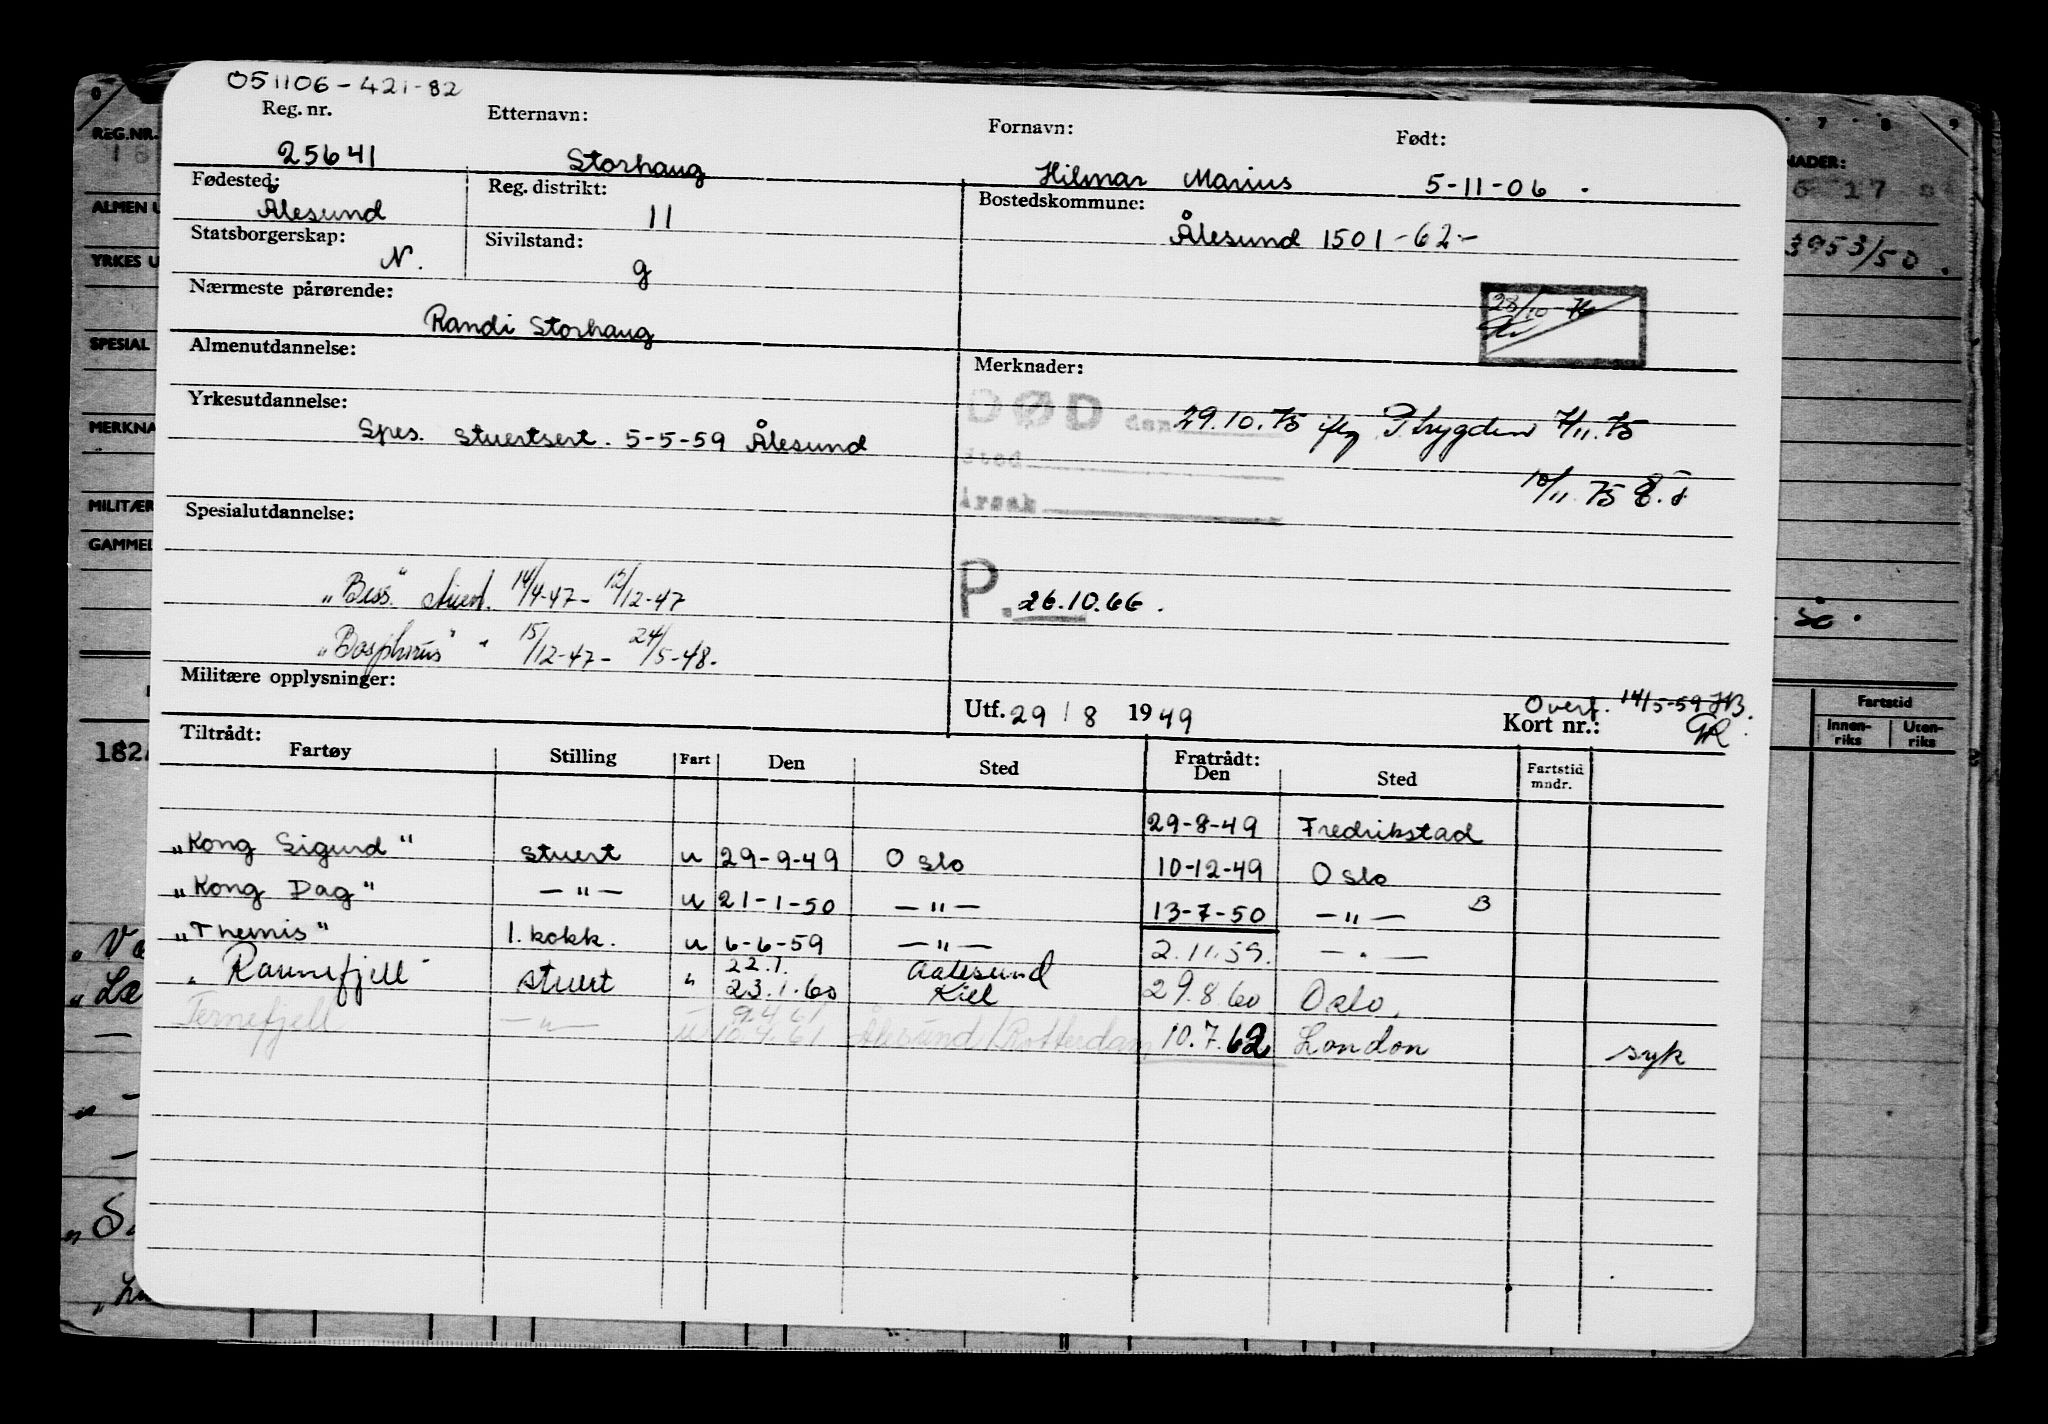 051106-421-82
Reg. nr. Etternavn: Fornavn: Født:
25641 Storhaug Hilmar Marius 5-11-06.
Fødested: Reg. distrikt: Bostedskommune:
Ålesund 11 Ålesund 1501-62-
Statsborgerskap: Sivilstand:
N. g
Nærmeste pårørende:
Randi Storhaug
28/10-76
Almenutdannelse: Merknader:
Yrkesutdannelse:
DØD den 29.10.75 iflg P.trygden 7/11.75
Spes. stuertsert. 5-5-59 Ålesund
Sted
10/11.75
Årsak
Spesialutdannelse:
„Bess" stuert. 14/4-47 - 12/12-47
P. 26.10.66.
„Bosphorus" " 15/12-47 - 24/5-48.
Militære opplysninger:
Utf. 29/8 1949 Overf. 14/5-59 HB.
Kort nr.: GR.
Tiltrådt: Fratrådt:
Fartøy Stilling Fart Den Sted Den Sted Fartstid mndr.
29-8-49 Fredrikstad
„Kong Sigurd" stuert u 29-9-49 Oslo 10-12-49 Oslo
„Kong Dag" —"— u 21-1-50 —"— 13-7-50 —"— B
„Themis" 1. kokk. u 6-6-59 —"— 2.11.59. —"—
„Ravnefjell" stuert " 22.1. 23.1.60 Aalesund Kiel 29.8.60 Oslo.
Ternefjell —"— u 9.4.61 10.4.61 Ålesund/Rotterdam 10.7.62 London syk
REG.NR.
ALMEN U
YRKES U
SPESIAL
MERKNA
MILITÆR
GAMMEL
182
NADER:
6 17
3953/50.
Fartstid
Innen-riks Uten-riks
7 8 9